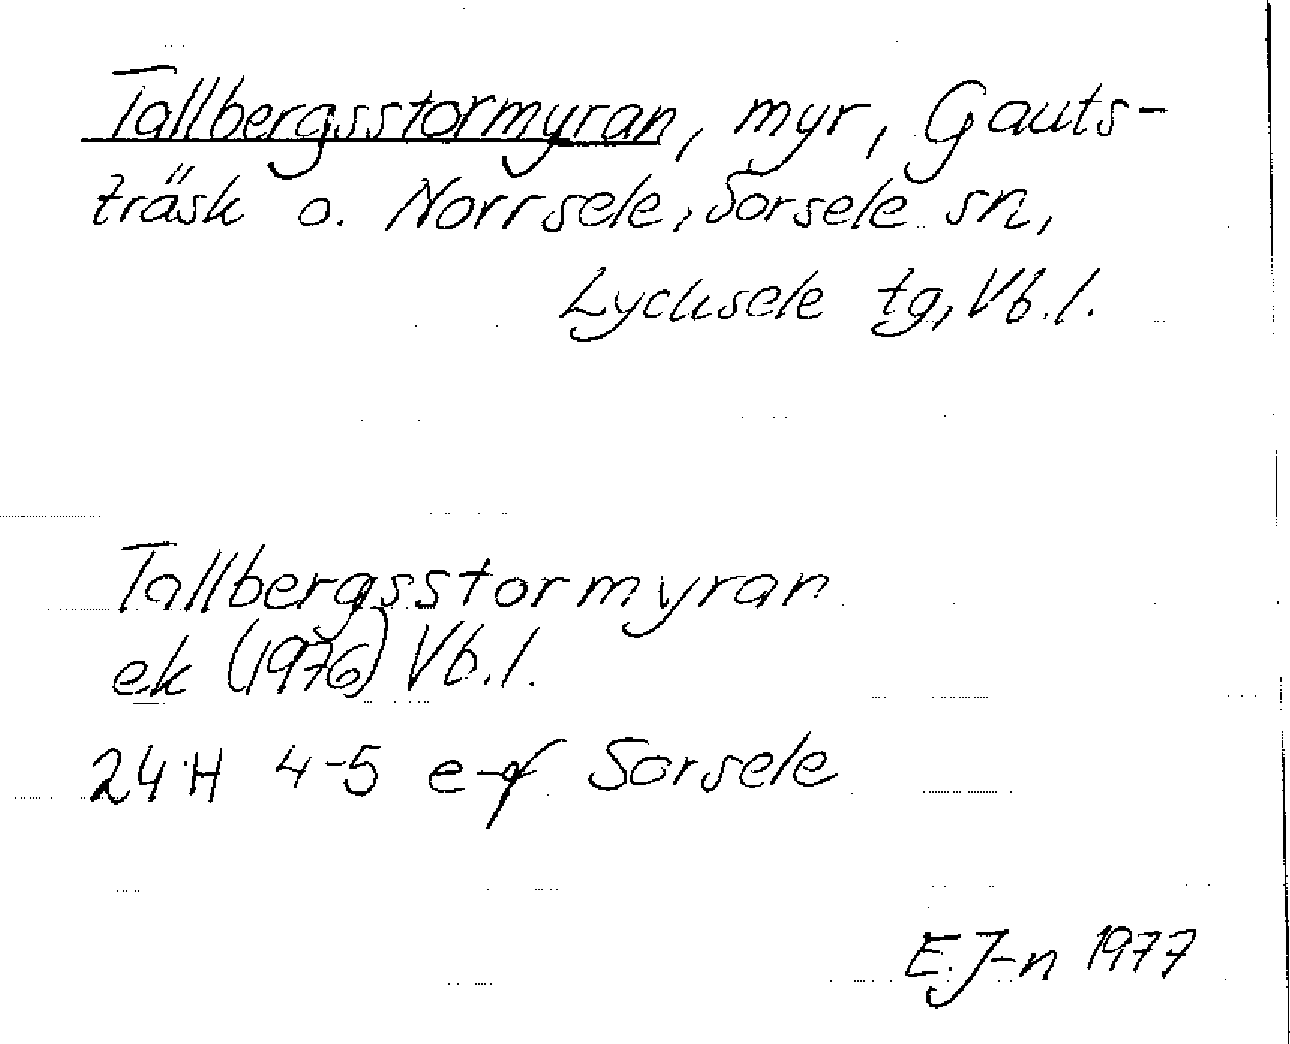 Tallbergsstormyran, myr, Gauts-
träsk o. Norrsele, Sorsele sn,
Lycksele tg, Vb.l.
Tallbergsstormyran
ek (1976) Vb.l.
24 H 4-5 e-f Sorsele
E.J-n 1977